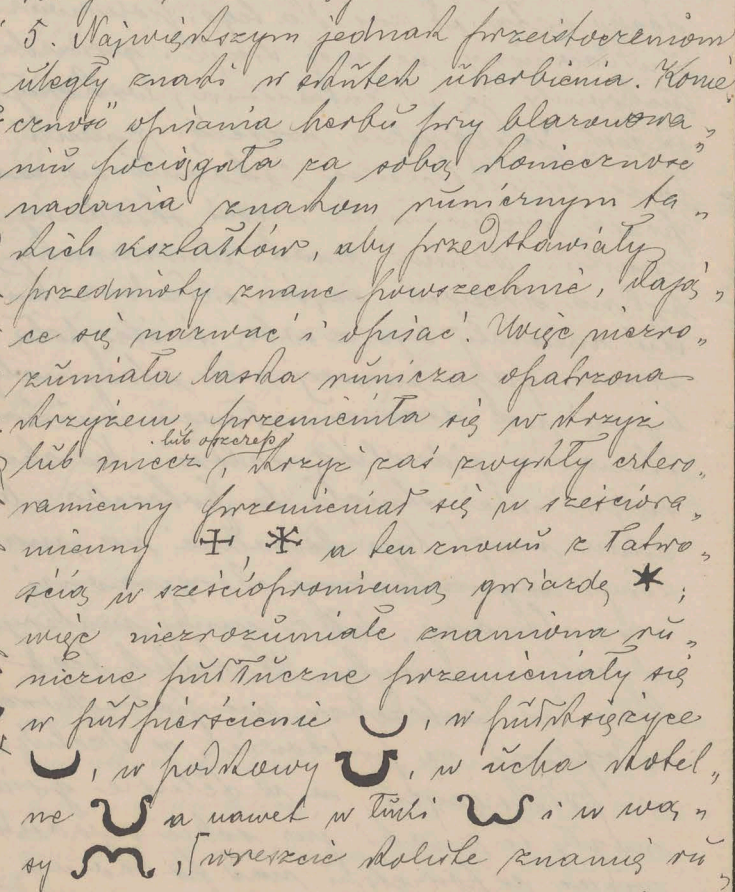 5. Największym jednak przeistoczeniom
uległy znaki w skutek uherbienia. Konie
czność opisania herbu przy blazonowa„
niu pociągała za sobą konieczność
nadania znakom runicznym ta„
kich kształtów, aby przedstawiały
przedmioty znane powszechnie, dają„
ce się nazwać i opisać. Więc niezro„
zumiała laska runicza opatrzona
krzyżem, przemieniła się w krzyż
lub oszczep
lub miecz, krzyż zaś zwykły cztero„
ramienny przemieniał się w sześciora„
mienny , a ten znowu z łatwo„
ścią w sześciopromienną gwiazdę ;
więc niezrozumiałe znamiona ru„
niczne półłuczne przemieniały się
w półpierścienie , w półksiężyce
, w podkowy , w ucha kotel„
ne a nawet w łuki i w wą„
sy , wreszcie koliste znamię ru„